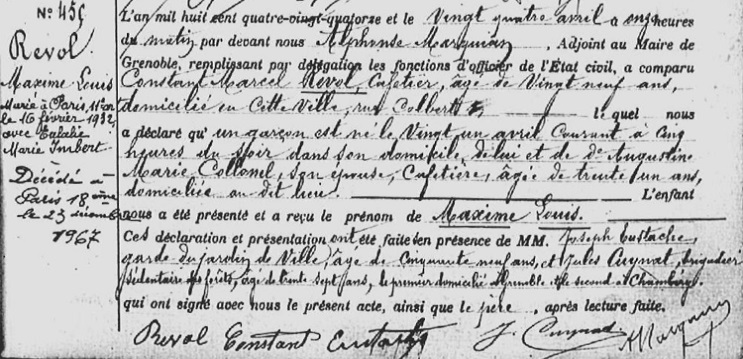 N° 456
Revol
Maxime Louis
Marié à Paris 11 em
le 16 février 1932
avec Eulalie
Marie Imbert
Décédé à
Paris 18 ème
le 23 décembre
1967
L'an mil huit cent quatre-vingt-quatorze et le Vingt quatre avril à onze heures
du matin par devant nous Alphonse Marquian, Adjoint au Maire de
Grenoble, remplissant par délégation les fonctions d'officier de l'État civil, a comparu
Constant Marcel Revol, Cafetier, âgé de Vingt neuf ans,
domicilié en Cette Ville, rue Colbert le quel nous
a déclaré qu'un garçon est né le Vingt un avril Courant à Cinq
heures du soir dans son domicile, de lui et de De Augustine
Marie Collonel, son épouse, Cafetière, âgée de trente un ans,
domiciliée au dit lieu. L'enfant
nous a été présenté et a reçu le prénom de Maxime Louis.
Ces déclaration et présentation ont été faites en présence de MM. Joseph Eustache,
garde du jardin de Ville, âgé de Cinquante neuf ans, et Jules Cuynat, brigadier
sédentaire des forêts, âgé de trente sept ans, le premier domicilié à Grenoble et le second à Chambéry.
qui ont signé avec nous le présent acte, ainsi que le père, après lecture faite.
Revol Constant Eustache J. Cuynat A Marquian